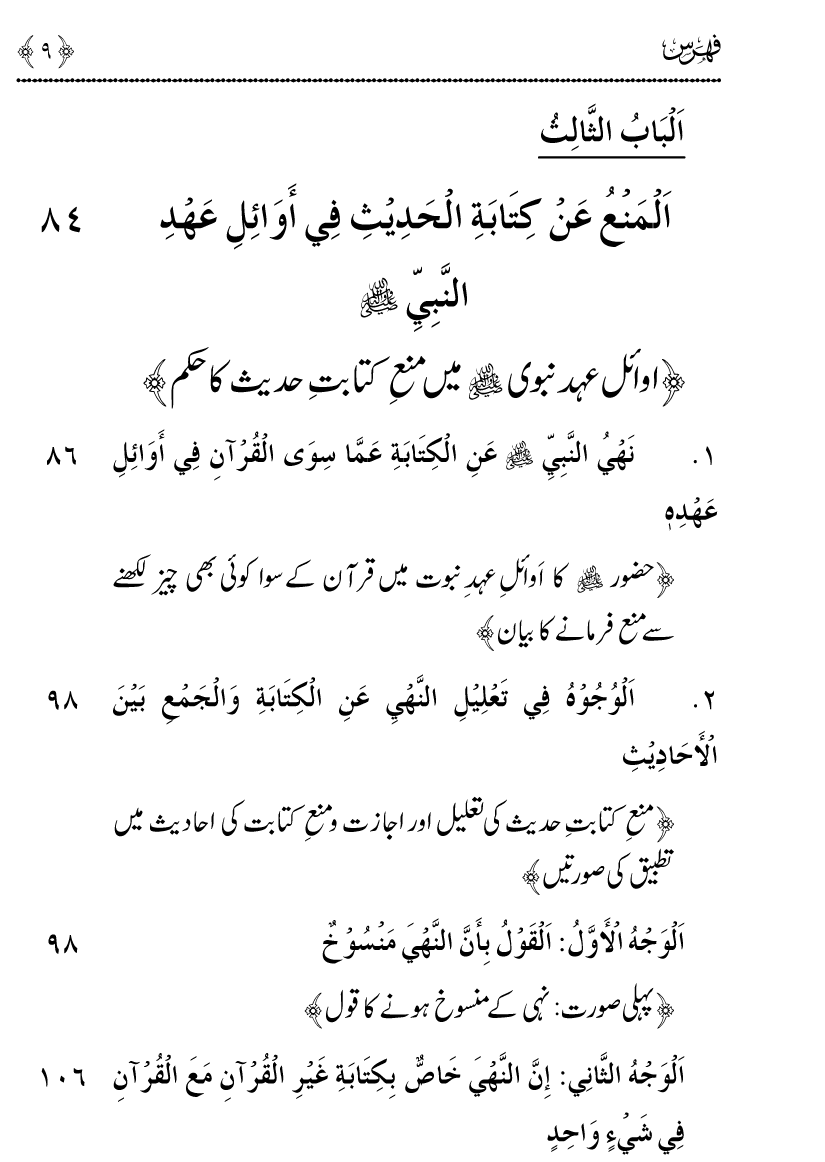 فہرس ﴿٩﴾
اَلْبَابُ الثَّالِثُ
اَلْمَنْعُ عَنْ كِتَابَةِ الْحَدِيْثِ فِي أَوَائِلِ عَهْدِ ٨٤
النَّبِيِّ ﷺ
﴿اوائل عہد نبوی ﷺ میں منعِ کتابتِ حدیث کا حکم﴾
١. نَهْيُ النَّبِيِّ ﷺ عَنِ الْكِتَابَةِ عَمَّا سِوَى الْقُرْآنِ فِي أَوَائِلِ ٨٦
عَهْدِهٖ
﴿حضور ﷺ کا اَوائلِ عہدِ نبوت میں قرآن کے سوا کوئی بھی چیز لکھنے
سے منع فرمانے کا بیان﴾
٢. اَلْوُجُوْهُ فِي تَعْلِيْلِ النَّهْيِ عَنِ الْكِتَابَةِ وَالْجَمْعِ بَيْنَ ٩٨
الْأَحَادِيْثِ
﴿منعِ کتابتِ حدیث کی تعلیل اور اجازت و منعِ کتابت کی احادیث میں
تطبیق کی صورتیں﴾
اَلْوَجْهُ الْأَوَّلُ: اَلْقَوْلُ بِأَنَّ النَّهْيَ مَنْسُوْخٌ ٩٨
﴿پہلی صورت: نہی کے منسوخ ہونے کا قول﴾
اَلْوَجْهُ الثَّانِي: إِنَّ النَّهْيَ خَاصٌّ بِكِتَابَةِ غَيْرِ الْقُرْآنِ مَعَ الْقُرْآنِ ١٠٦
فِي شَيْءٍ وَاحِدٍ